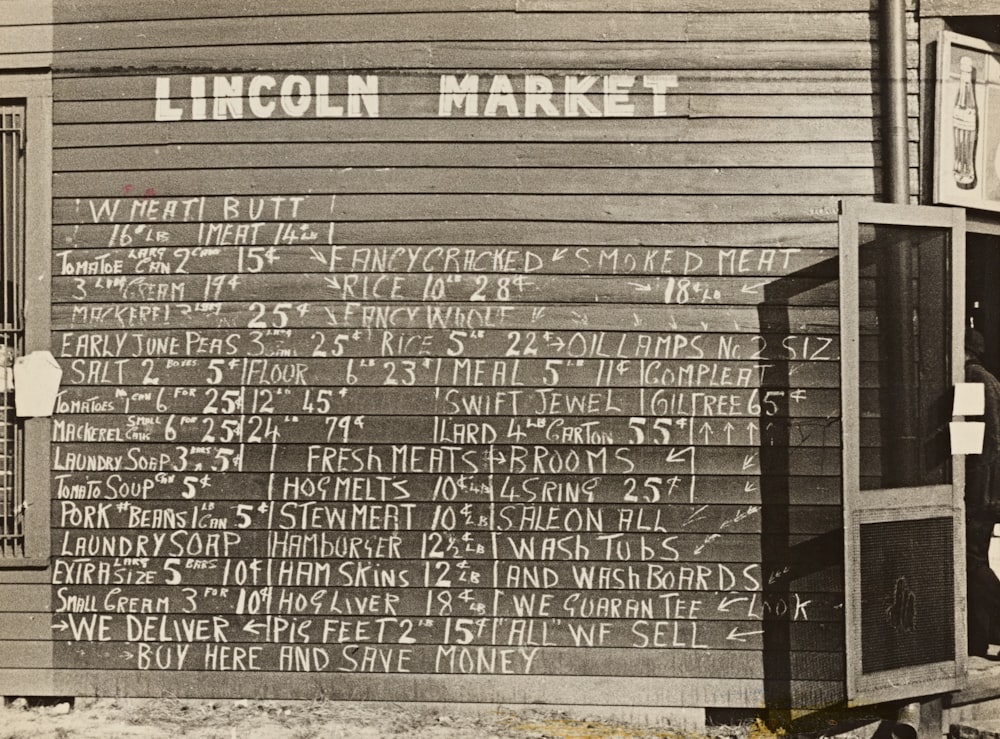 LINCOLN MARKET
W MEAT | BUTT |
16¢ LB | MEAT 14¢ LB |
TOMATOE LARG CAN 2 CANS 15¢ → FANCY CRACKED ← SMOKED MEAT
3 CREAM 19¢ → RICE 10 LB 28¢ → 18¢ LB ←
MACKEREL 25¢ FANCY WHOLE
EARLY JUNE PEAS 3 25¢ RICE 5 LB 22¢ → OIL LAMPS NO 2 SIZ
SALT 2 BOXES 5¢ | FLOUR 6 LB 23¢ | MEAL 5 LB 11¢ | COMPLEAT
TOMATOES No 1 CAN 6 FOR 25¢ | 12 LB 45¢ | SWIFT JEWEL | OILFREE 65¢
MACKEREL SMALL CANS 6 FOR 25¢ | 24 LB 79¢ | LARD 4 LB CARTON 55¢ | ↑ ↑ ↑
LAUNDRY SOAP 3 BARS 5¢ | FRESH MEATS → BROOMS ↙
TOMATO SOUP CAN 5¢ | HOG MELTS 10¢ LB | 4 SRING 25¢ |
PORK # BEANS 1 CAN 5¢ | STEW MEAT 10¢ LB | SALE ON ALL
LAUNDRY SOAP | HAMBURGER 12½¢ LB | WASH TUBS
EXTRA LARG SIZE 5 BARS 10¢ | HAM SKINS 12¢ LB | AND WASH BOARDS
SMALL CREAM 3 FOR 10¢ | HOG LIVER 18¢ LB | WE GUARANTEE ← LOOK
→ WE DELIVER ← | PIG FEET 2 LB 15¢ | "ALL" WE SELL ←
→ BUY HERE AND SAVE MONEY